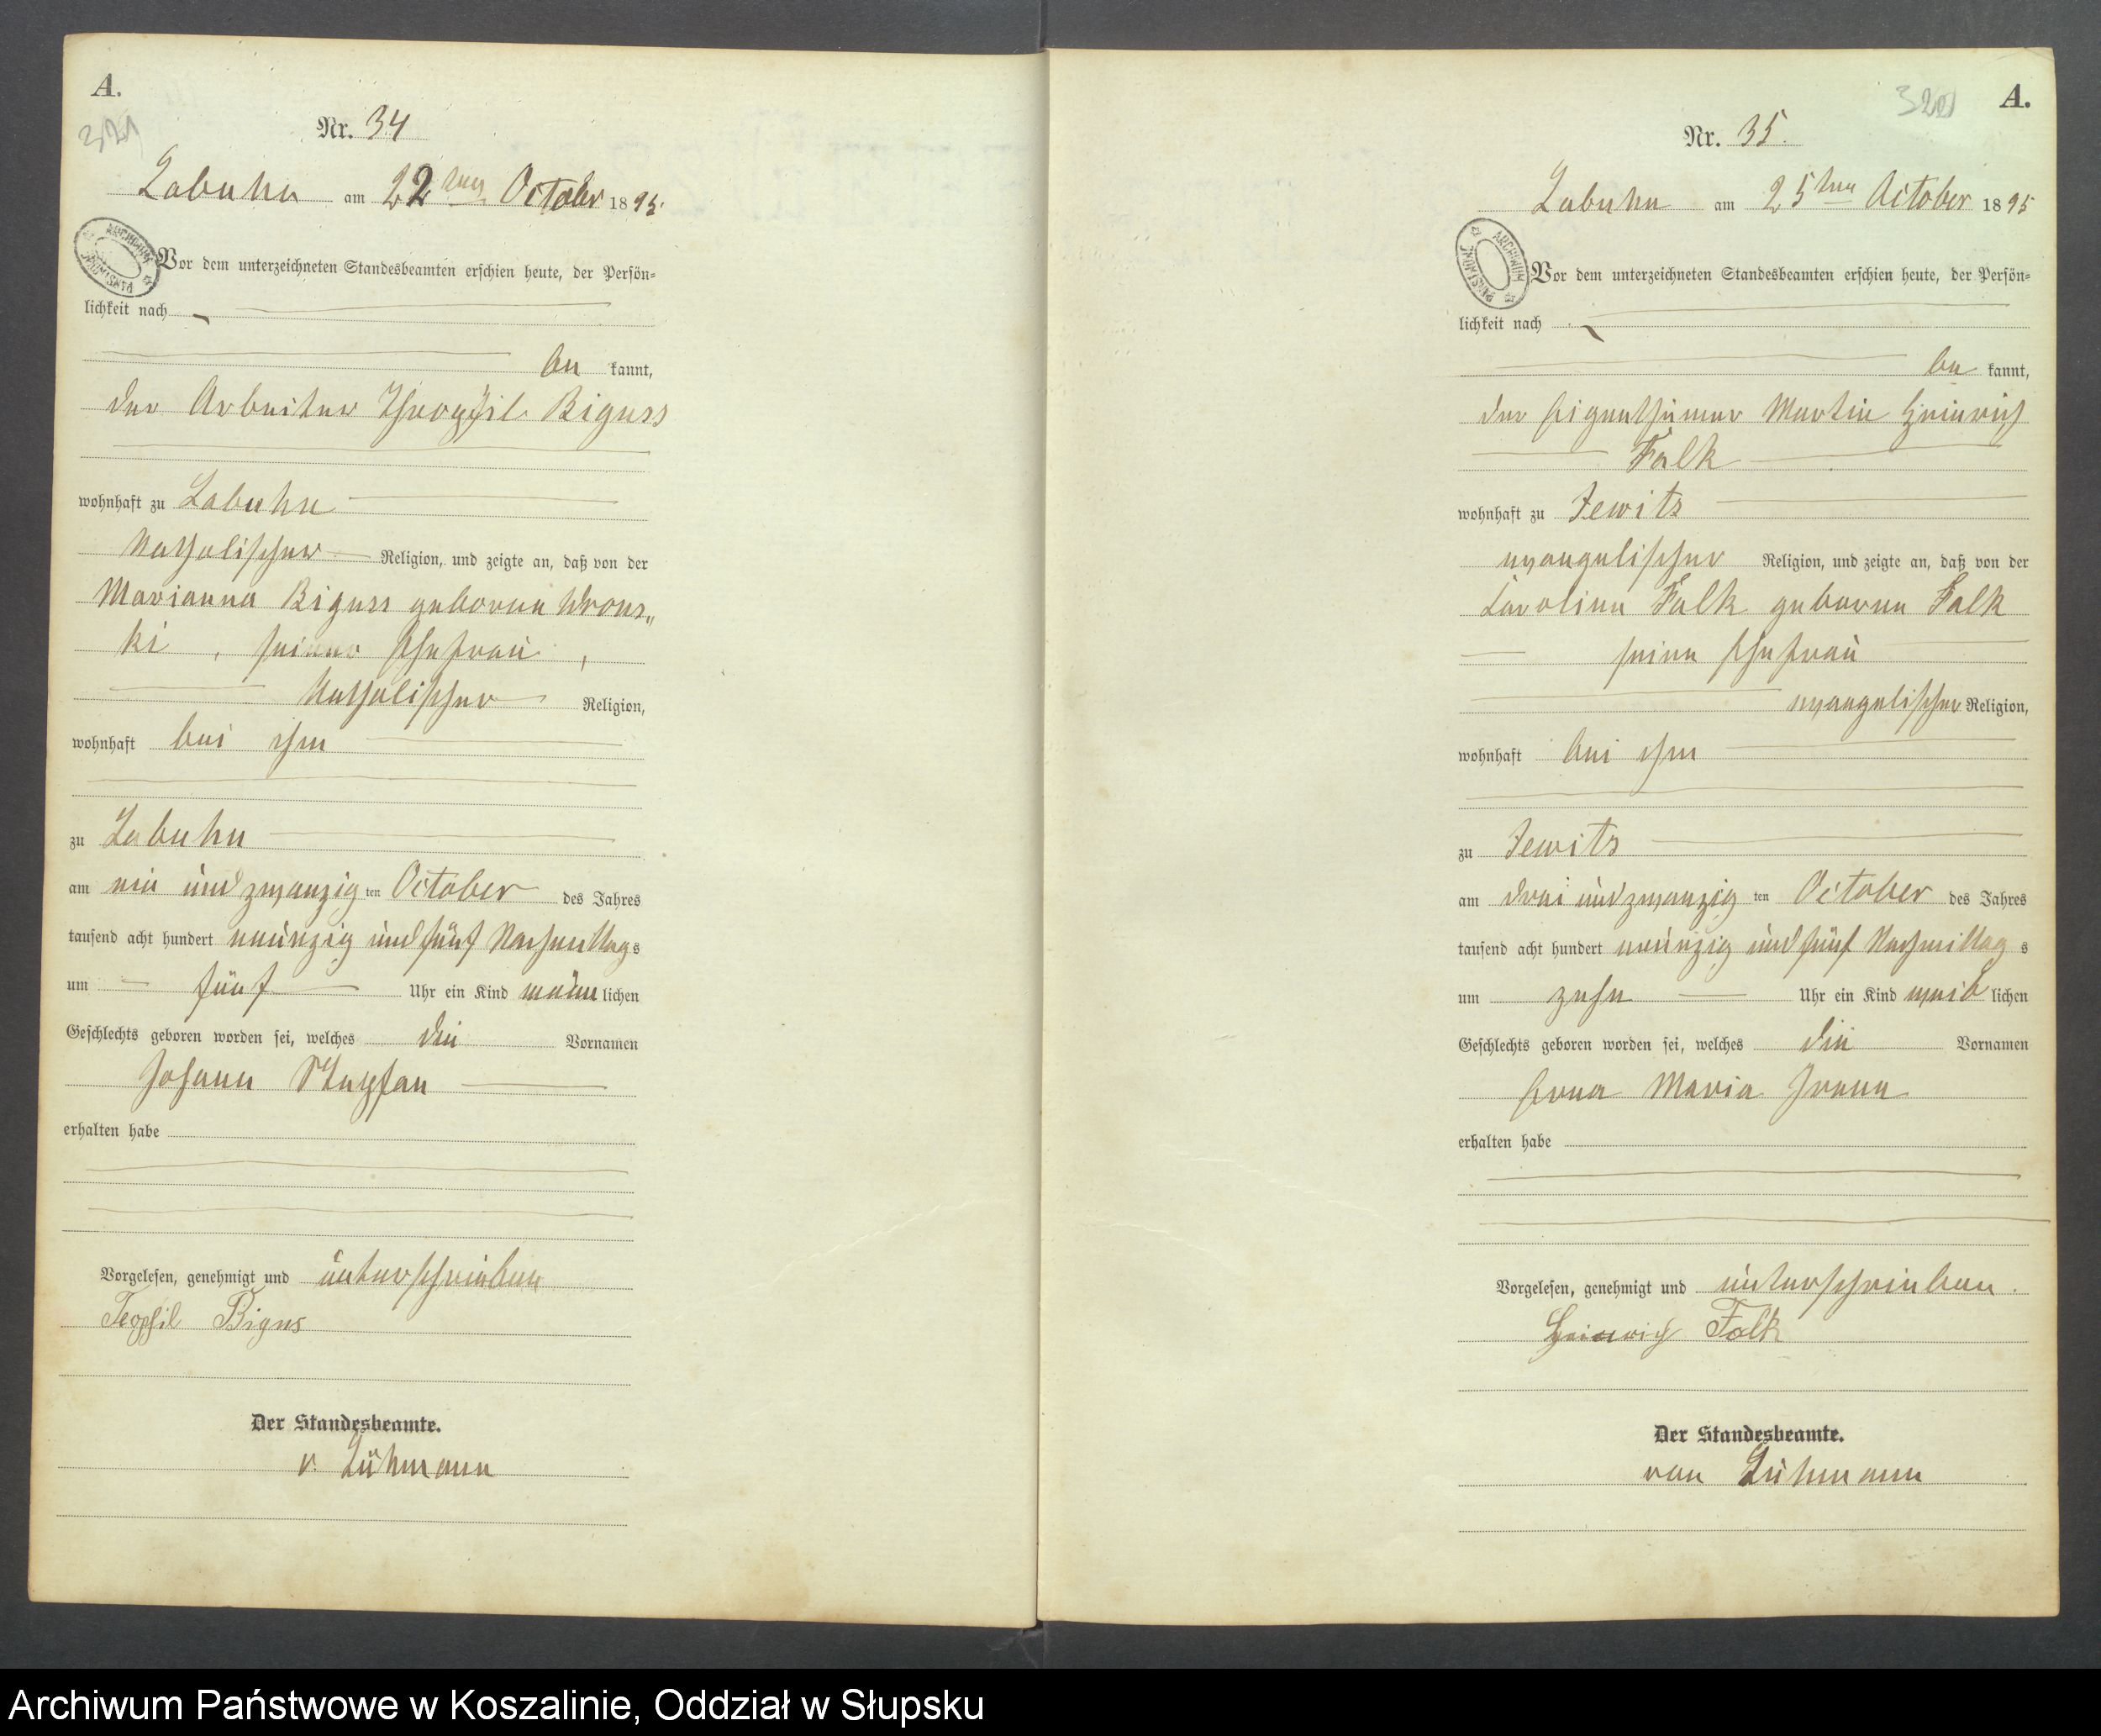 A.
Nr. 34
Labuhn am 22ten October 1895.
ARCHIWUM PAŃSTWOWE
Vor dem unterzeichneten Standesbeamten erschien heute, der Persön-
lichkeit nach
be kannt,
der Arbeiter Theophil Biguss
wohnhaft zu Labuhn
katholischer Religion, und zeigte an, daß von der
Marianna Biguss geborene Wrons-
ki, seiner Ehefrau,
katholischer Religion,
wohnhaft bei ihm
zu Labuhn
am ein und zwanzig ten October des Jahres
tausend acht hundert neunzig und fünf Nachmittags
um fünf Uhr ein Kind männlichen
Geschlechts geboren worden sei, welches die Vornamen
Johann Stephan
erhalten habe
Vorgelesen, genehmigt und unterschrieben
Teophil Bigus
Der Standesbeamte.
v. Lühmann
A.
Nr. 35.
Labuhn am 25ten October 1895
ARCHIWUM PAŃSTWOWE
Vor dem unterzeichneten Standesbeamten erschien heute, der Persön-
lichkeit nach
be kannt,
der Eigenthümer Martin Heinrich
Falk
wohnhaft zu Jewitz
evangelischer Religion, und zeigte an, daß von der
Caroline Falk geborene Falk
seine Ehefrau
evangelischer Religion,
wohnhaft bei ihm
zu Jewitz
am drei und zwanzig ten October des Jahres
tausend acht hundert neunzig und fünf Nachmittag s
um zehn Uhr ein Kind weib lichen
Geschlechts geboren worden sei, welches die Vornamen
Erna Maria Irene
erhalten habe
Vorgelesen, genehmigt und unterschrieben.
Heinrich Falk
Der Standesbeamte.
von Lühmann
Archiwum Państwowe w Koszalinie, Oddział w Słupsku